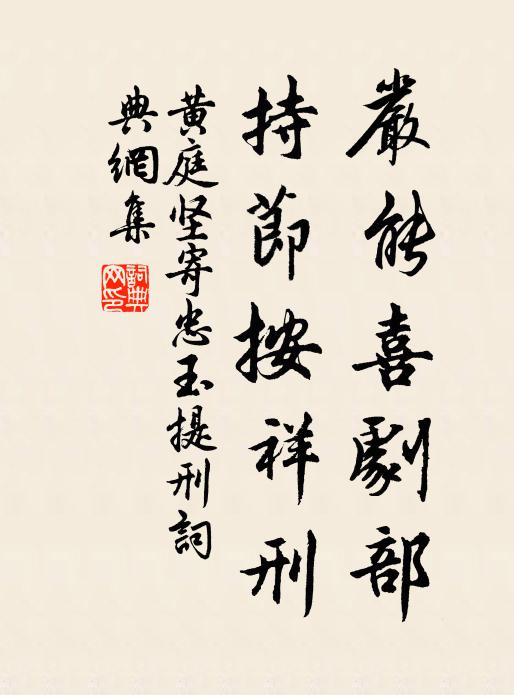 嚴能喜劇部
持節按祥刑
黃庭坚寄忠玉提刑詞
典網集
詞典網印